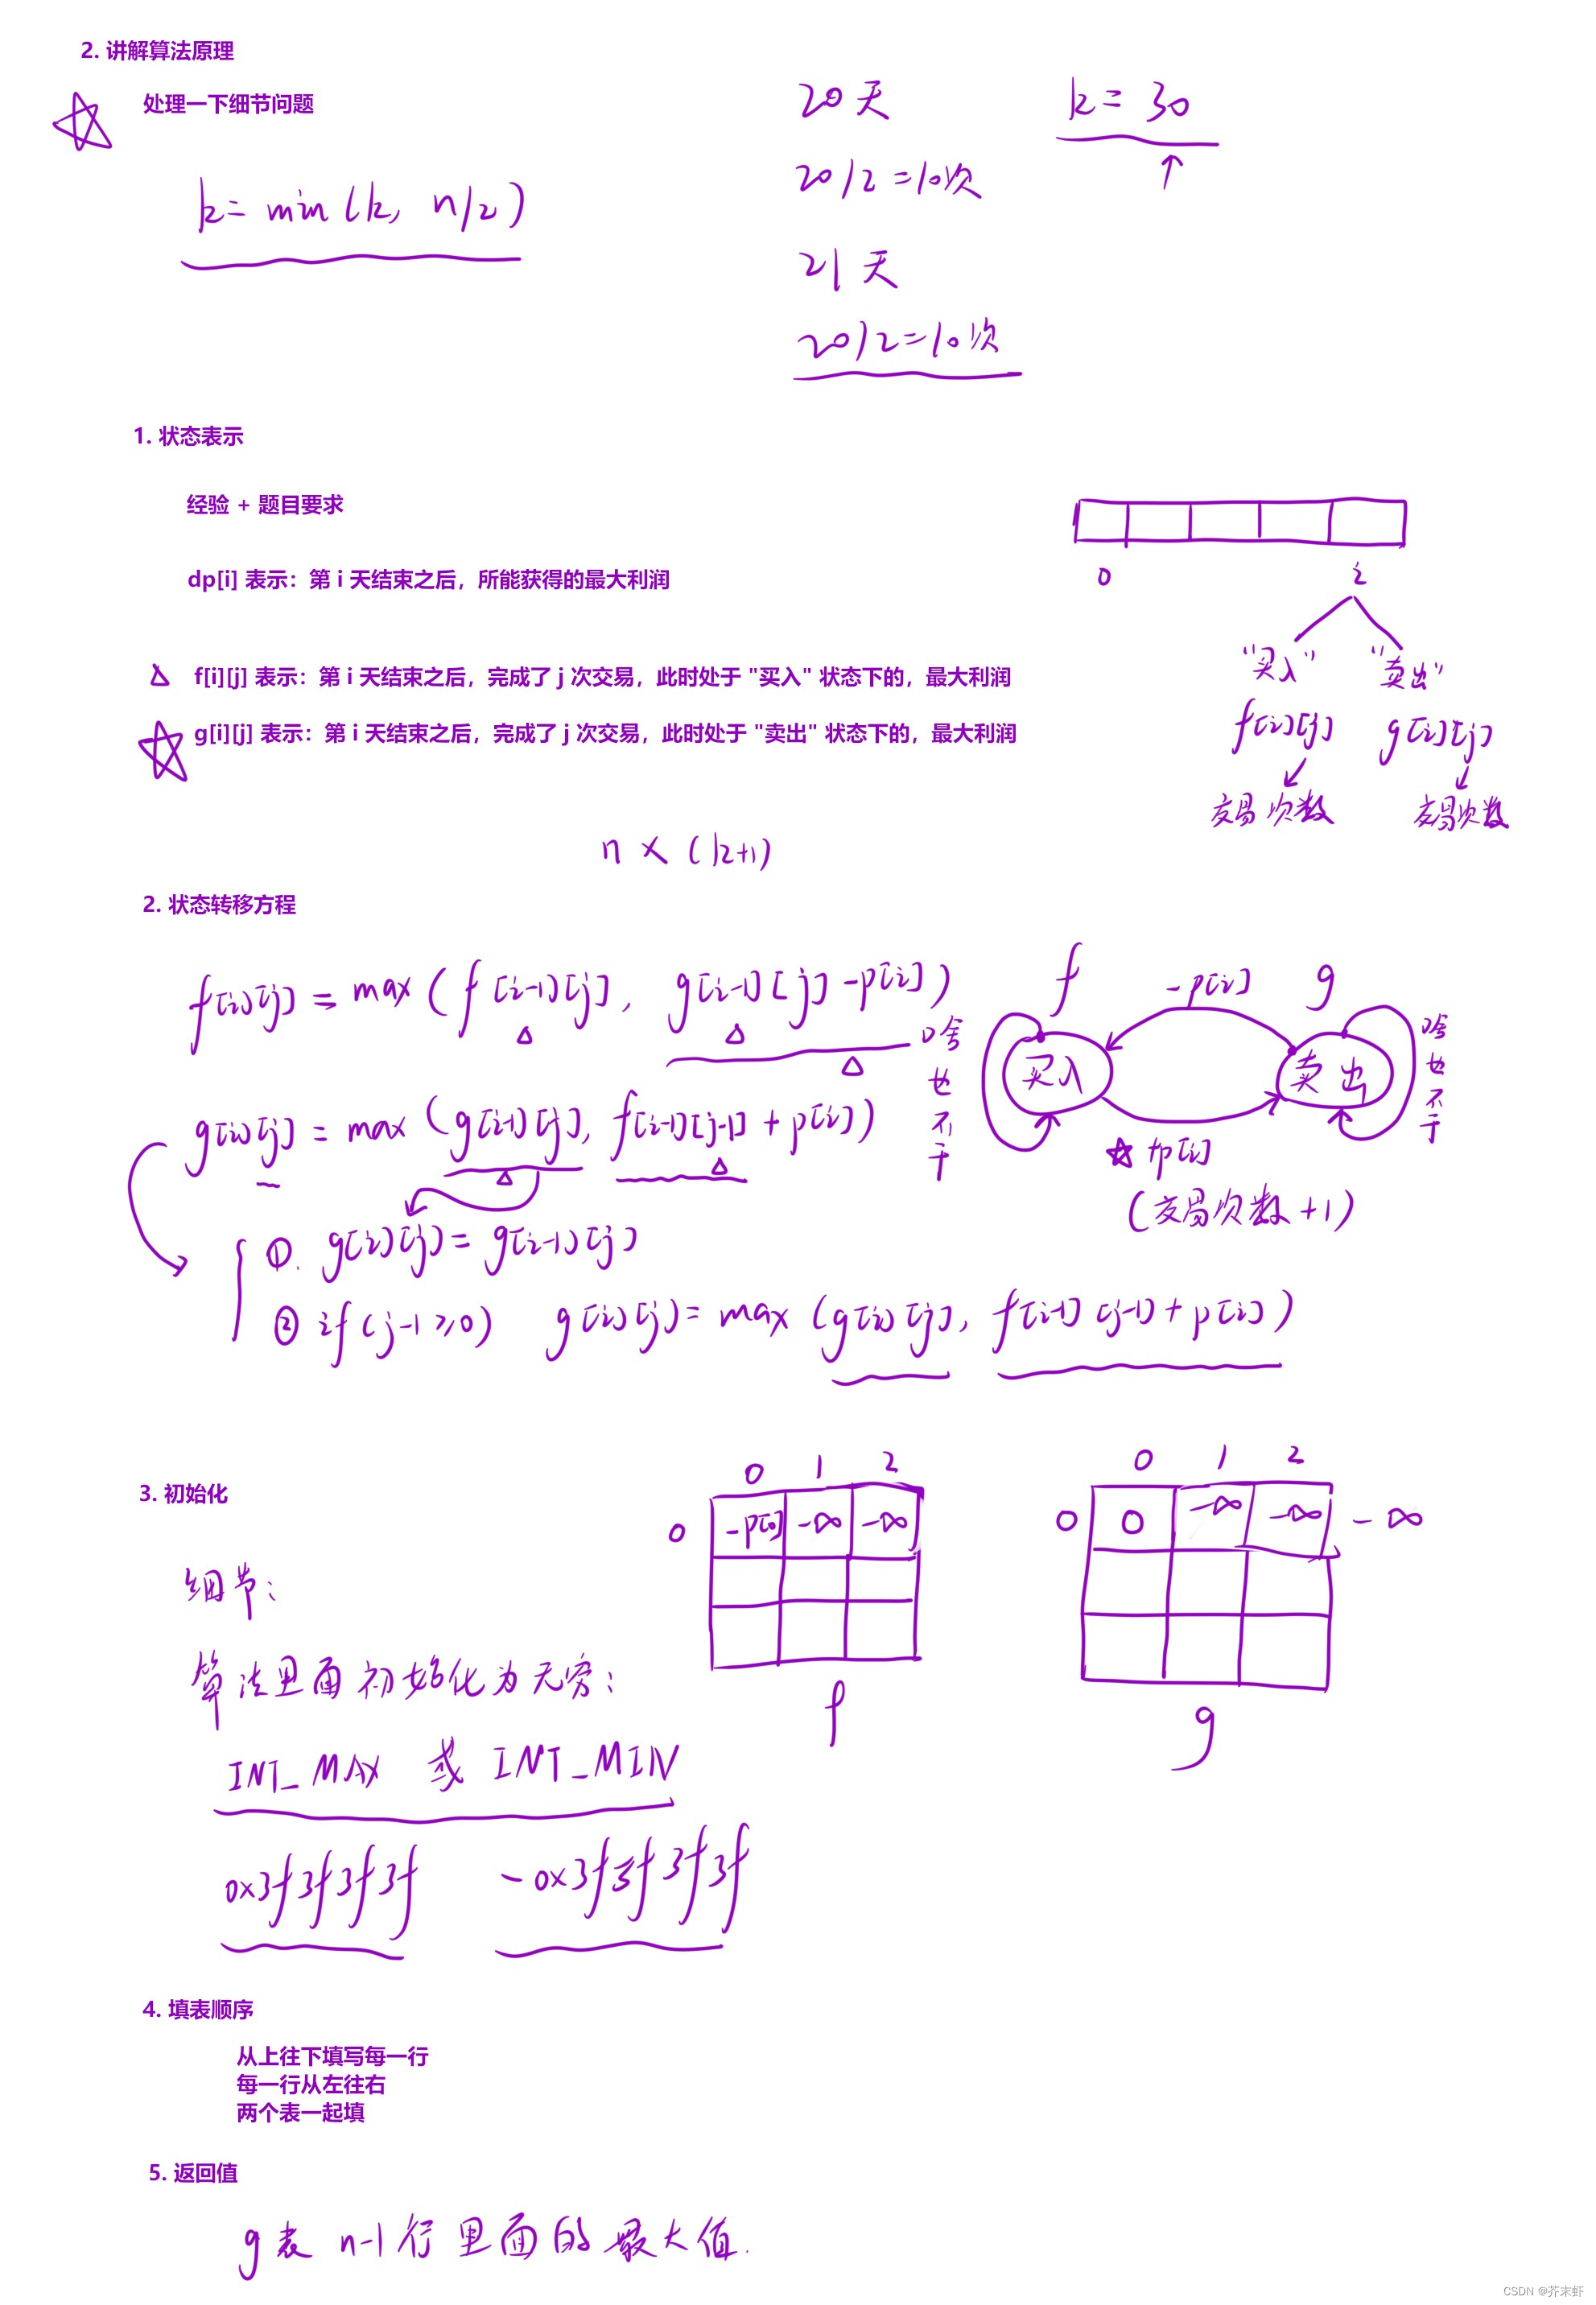 2. 讲解算法原理
处理一下细节问题
k = min(k, n/2)
20天
k = 30
20/2=10次
21天
20/2=10次
1. 状态表示
经验 + 题目要求
dp[i] 表示：第 i 天结束之后，所能获得的最大利润
0 i
"买入" "卖出"
f[i][j] g[i][j]
交易次数 交易次数
f[i][j] 表示：第 i 天结束之后，完成了 j 次交易，此时处于 "买入" 状态下的，最大利润
g[i][j] 表示：第 i 天结束之后，完成了 j 次交易，此时处于 "卖出" 状态下的，最大利润
n × (k+1)
2. 状态转移方程
f[i][j] = max(f[i-1][j], g[i-1][j] - p[i])
g[i][j] = max(g[i-1][j], f[i-1][j-1] + p[i])
f -p[i] g
啥也不干 买入 卖出 啥也不干
+p[i]
(交易次数+1)
①. g[i][j] = g[i-1][j]
② if(j-1≥0) g[i][j] = max(g[i][j], f[i-1][j-1] + p[i])
3. 初始化
0 1 2
0 -p[0] -∞ -∞
f
0 1 2
0 0 -∞ -∞ -∞
g
细节：
算法里面初始化为无穷：
INT_MAX 或 INT_MIN
0x3f3f3f3f -0x3f3f3f3f
4. 填表顺序
从上往下填写每一行
每一行从左往右
两个表一起填
5. 返回值
g表 n-1行里面的最大值.
CSDN @芥末虾